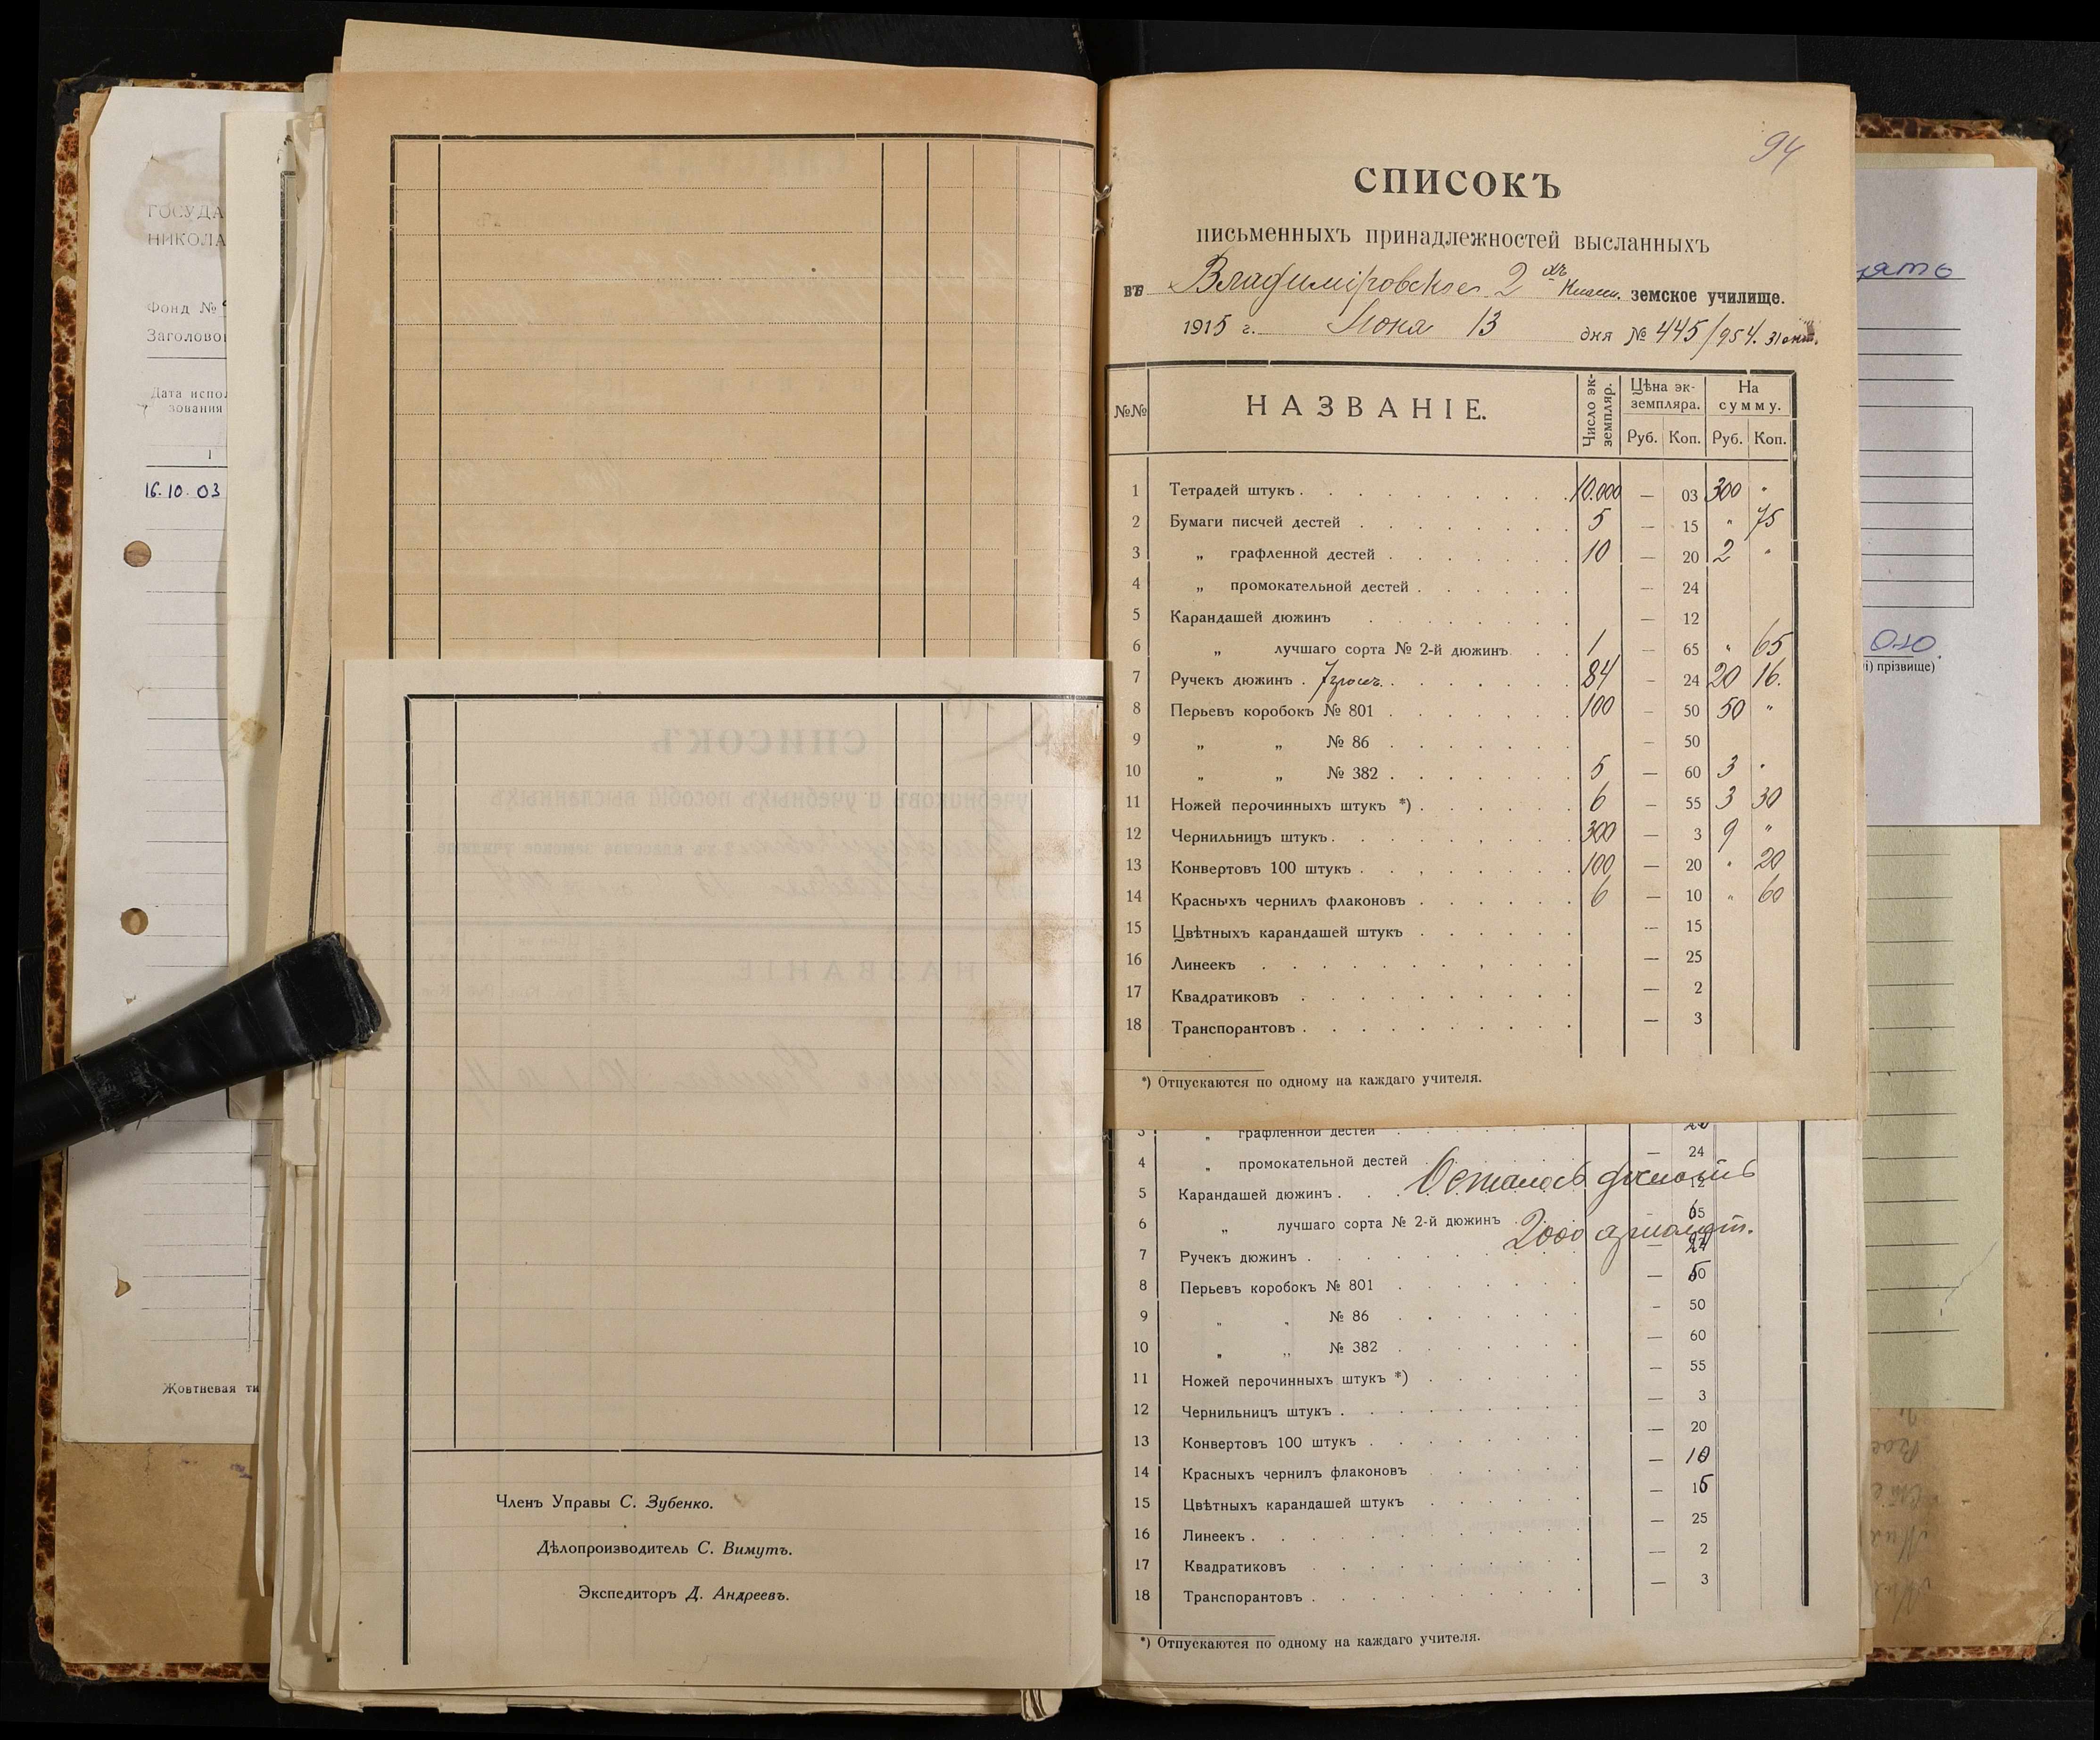 ГОСУДА
НИКОЛА
Фонд №
Заголово
Дата испол
зования
1
16.10.03
Жовтневая ти
Членъ Управы С. Зубенко.
Дѣлопроизводитель С. Вимутъ.
Экспедиторъ Д. Андреевъ.
94
СПИСОКЪ
письменныхъ принадлежностей высланныхъ
въ Владиміровское 2 хъ класс. земское училище.
1915 г. 13 дня № 445/954. 31
№№ НАЗВАНІЕ. Число эк-земпляр. Цѣна эк-земпляра. На сумму.
Руб. Коп. Руб. Коп.
1 Тетрадей штукъ 10.000 — 03 300 "
2 Бумаги писчей дестей 5 — 15 " 75
3 „ графленной дестей 10 — 20 2 "
4 „ промокательной дестей — 24
5 Карандашей дюжинъ — 12
6 „ лучшаго сорта № 2-й дюжинъ 1 — 65 " 65
7 Ручекъ дюжинъ 84 — 24 20 16.
8 Перьевъ коробокъ № 801 100 — 50 50 "
9 „ „ № 86 — 50
10 „ „ № 382 5 — 60 3 "
11 Ножей перочинныхъ штукъ *) 6 — 55 3 30
12 Чернильницъ штукъ 300 — 3 9 "
13 Конвертовъ 100 штукъ 100 — 20 " 20
14 Красныхъ чернилъ флаконовъ 6 — 10 " 60
15 Цвѣтныхъ карандашей штукъ — 15
16 Линеекъ — 25
17 Квадратиковъ — 2
18 Транспорантовъ — 3
*) Отпускаются по одному на каждаго учителя.
3 „ графленной дестей 20
4 „ промокательной дестей — 24
Осталось
5 Карандашей дюжинъ 12
6 „ лучшаго сорта № 2-й дюжинъ — 65
2000
7 Ручекъ дюжинъ — 24
8 Перьевъ коробокъ № 801 — 50
9 „ „ № 86 — 50
10 „ „ № 382 — 60
11 Ножей перочинныхъ штукъ *) — 55
12 Чернильницъ штукъ — 3
13 Конвертовъ 100 штукъ — 20
14 Красныхъ чернилъ флаконовъ — 10
15 Цвѣтныхъ карандашей штукъ — 15
16 Линеекъ — 25
17 Квадратиковъ — 2
18 Транспорантовъ — 3
*) Отпускаются по одному на каждаго учителя.
і) прізвище)